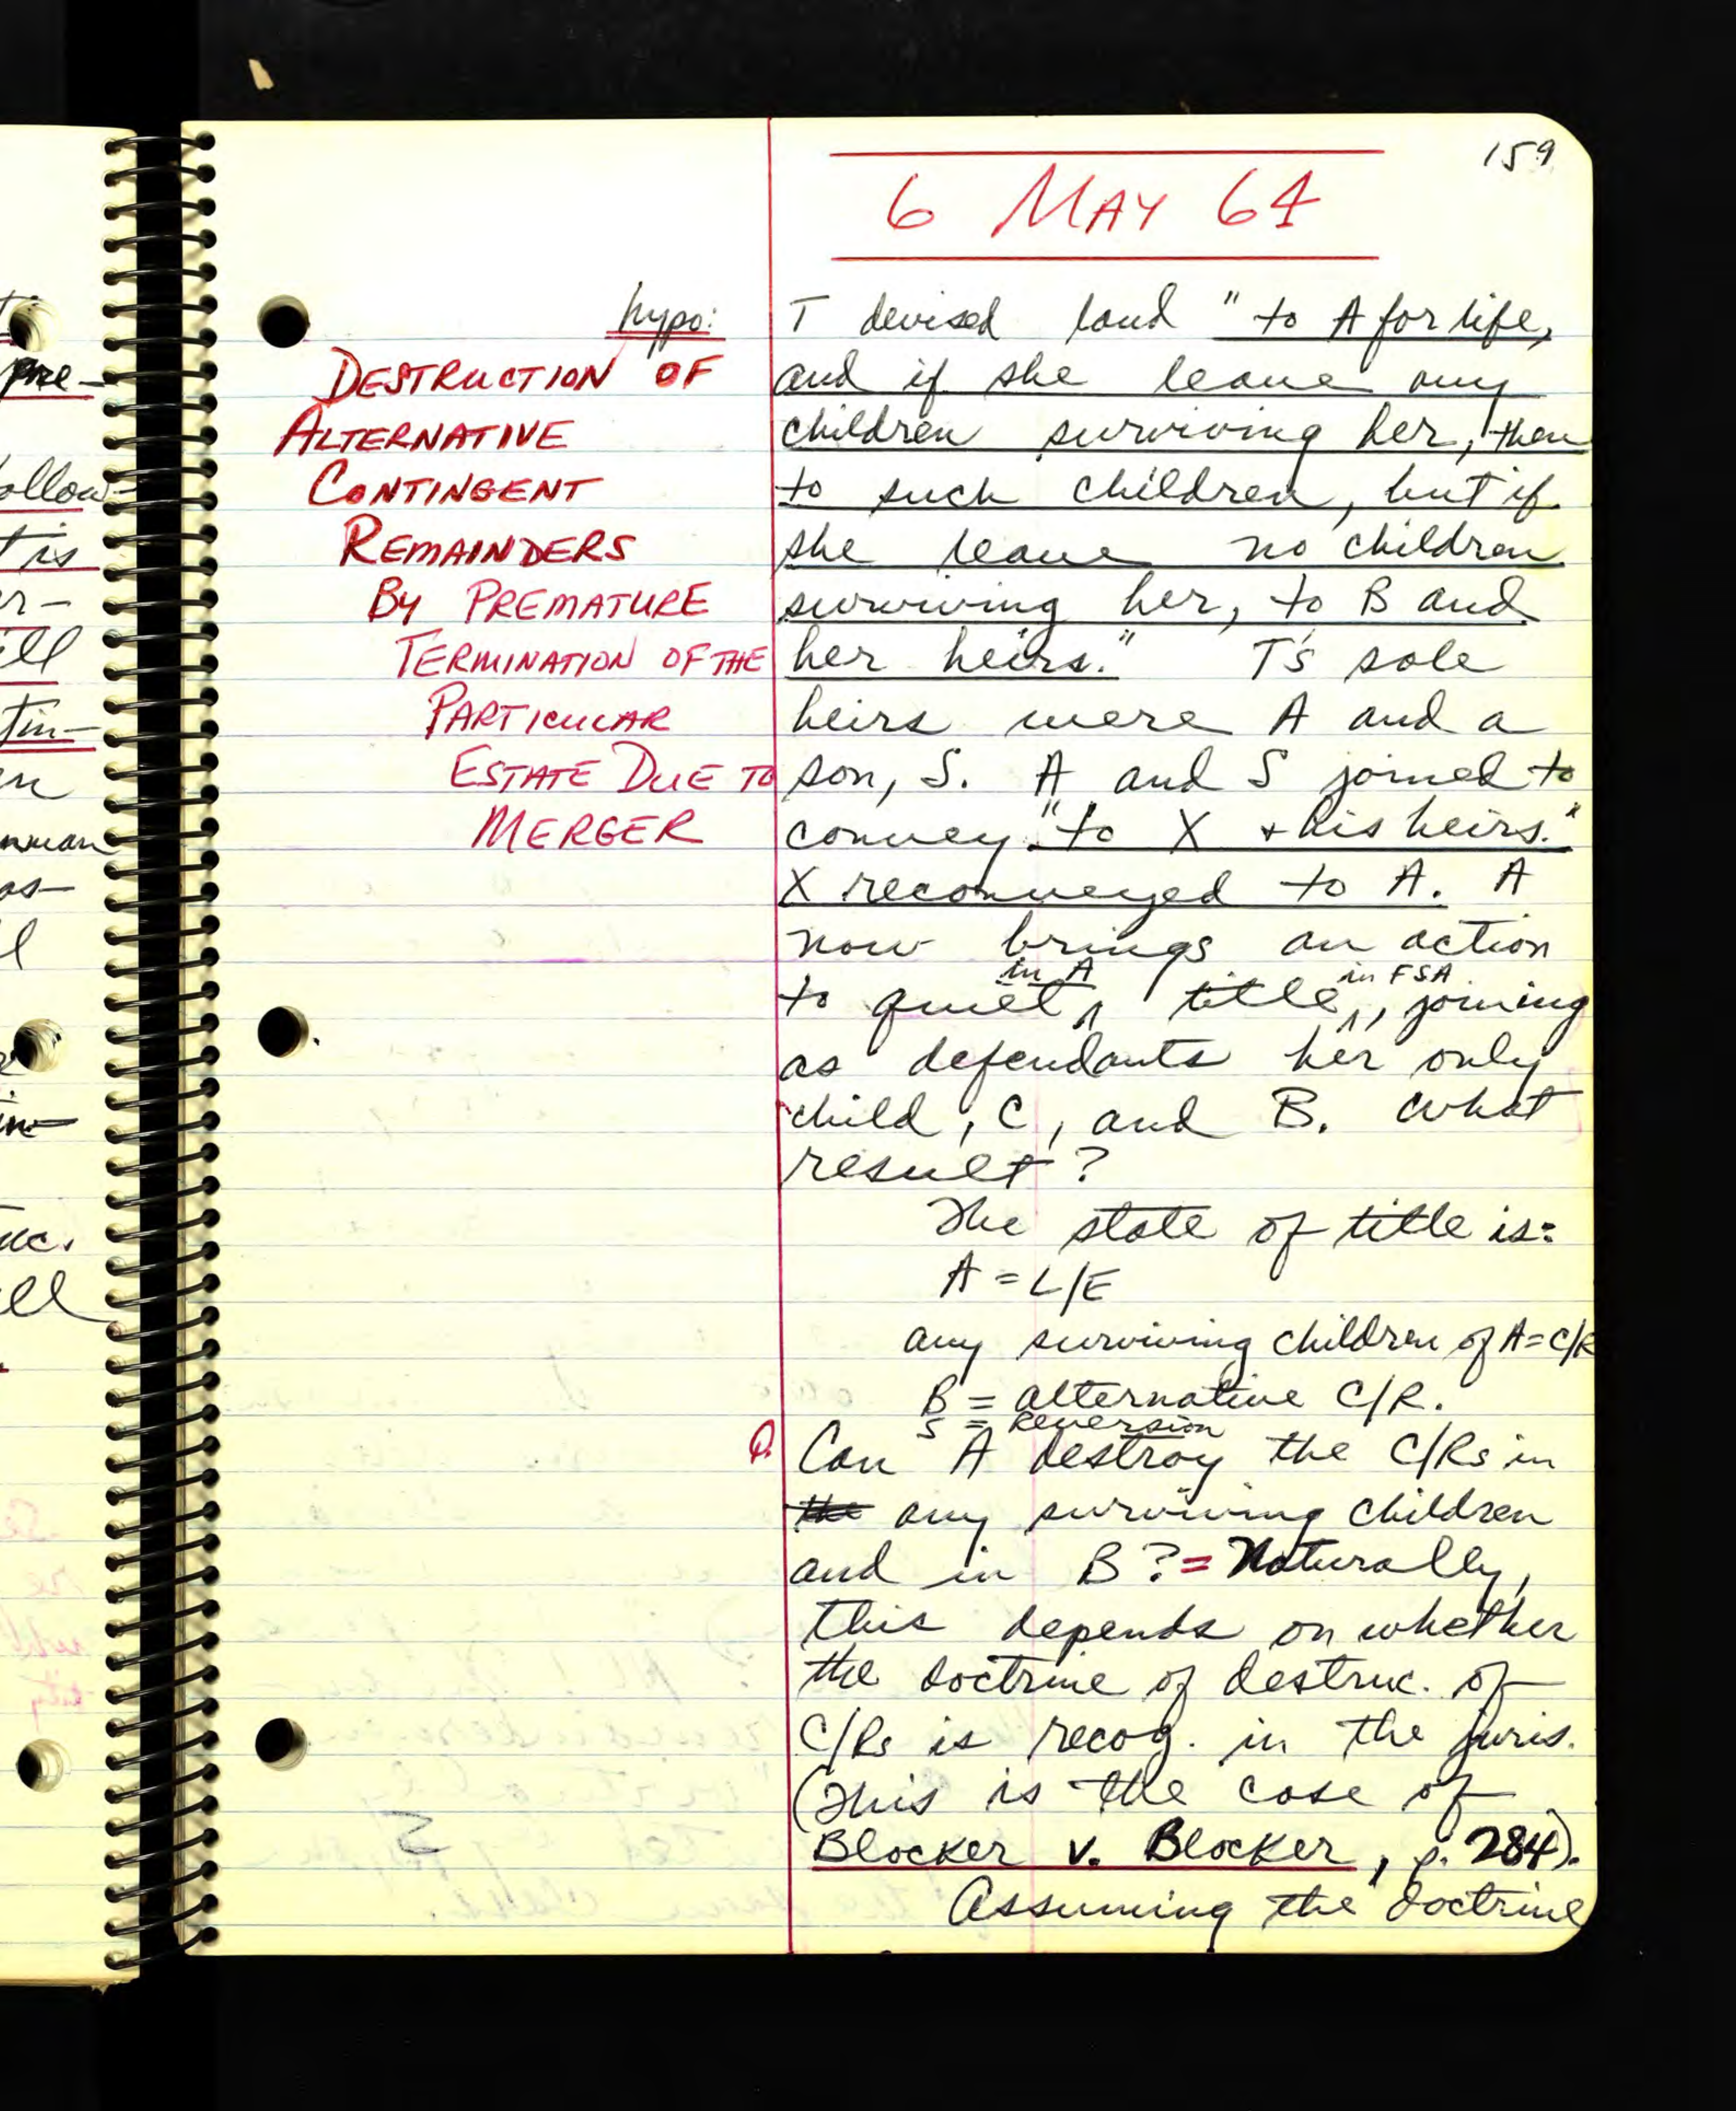 159
6 MAY 64
hypo:
DESTRUCTION OF
ALTERNATIVE
CONTINGENT
REMAINDERS
BY PREMATURE
TERMINATION OF THE
PARTICULAR
ESTATE DUE TO
MERGER
T devised land "to A for life,
and if she leave any
children surviving her, then
to such children, but if
she leave no children
surviving her, to B and
her heirs." T's sole
heirs were A and a
son, S. A and S joined to
convey "to X + his heirs."
X reconveyed to A. A
now brings an action
in A in FSA
to quiet ^ title ^, joining
as defendants her only
child, C, and B. What
result?
The state of title is:
A = L/E
any surviving children of A = C/R
B = alternative C/R.
S = Reversion
Q. Can A destroy the C/Rs in
the any surviving children
and in B? = Naturally,
this depends on whether
the doctrine of destruc. of
C/Rs is recog. in the juris.
(This is the case of
Blocker v. Blocker, p. 284).
Assuming the doctrine
pre-
ollow-
t is
er-
ill
tin-
en
as-
l
in-
uc.
ell